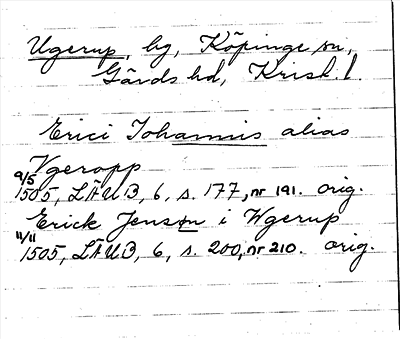 Ugerup, by, Köpinge sn,
Gärds hd, Krist. l.
Erici Johannis alias
Vgeropp
9/5 1505, LÄUB, 6, s. 177, nr 191. orig.
Erick Jensøn i Wgerup
11/11 1505, LÄUB, 6, s. 200, nr 210. orig.